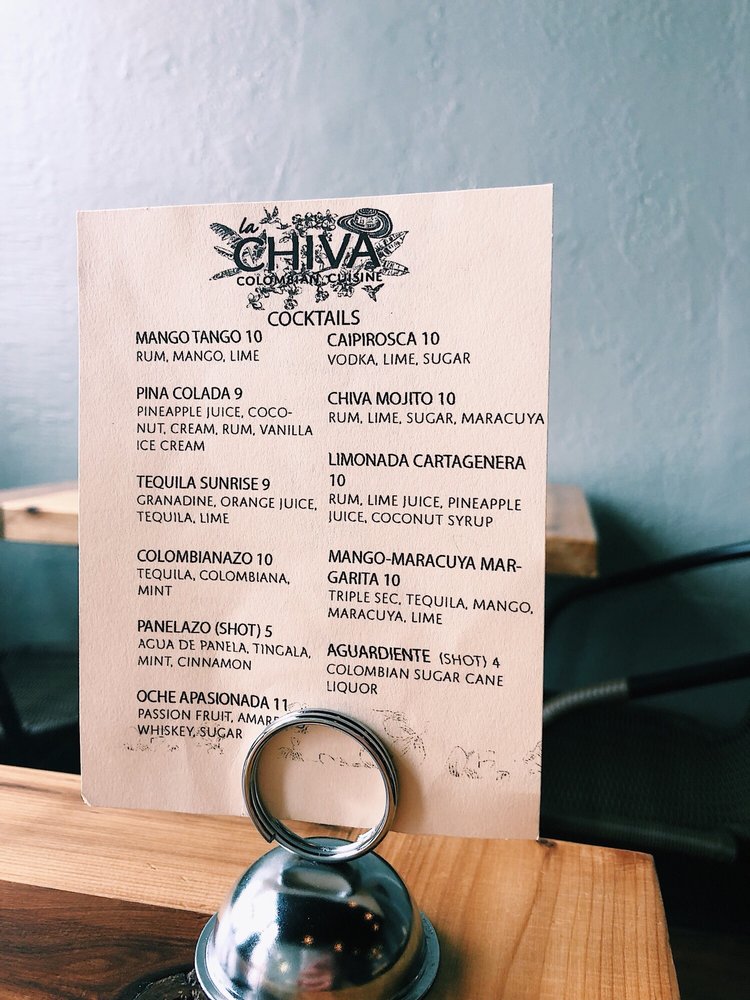 la
CHIVA
COLOMBIAN CUISINE
COCKTAILS
MANGO TANGO 10
RUM, MANGO, LIME
PINA COLADA 9
PINEAPPLE JUICE, COCO-
NUT, CREAM, RUM, VANILLA
ICE CREAM
TEQUILA SUNRISE 9
GRANADINE, ORANGE JUICE,
TEQUILA, LIME
COLOMBIANAZO 10
TEQUILA, COLOMBIANA,
MINT
PANELAZO (SHOT) 5
AGUA DE PANELA, TINGALA,
MINT, CINNAMON
OCHE APASIONADA 11
PASSION FRUIT,
WHISKEY, SUGAR
CAIPIROSCA 10
VODKA, LIME, SUGAR
CHIVA MOJITO 10
RUM, LIME, SUGAR, MARACUYA
LIMONADA CARTAGENERA
10
RUM, LIME JUICE, PINEAPPLE
JUICE, COCONUT SYRUP
MANGO-MARACUYA MAR-
GARITA 10
TRIPLE SEC, TEQUILA, MANGO,
MARACUYA, LIME
AGUARDIENTE (SHOT) 4
COLOMBIAN SUGAR CANE
LIQUOR